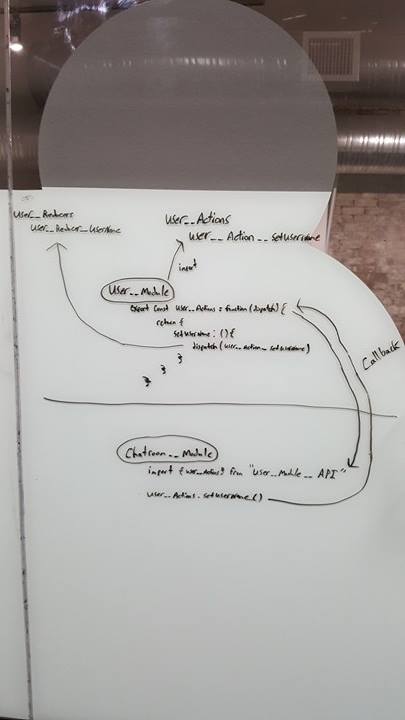 User__Reducers
User__Reducer__UserName
User__Actions
User__Action__setUserName
import
User__Module
export const User__Actions = function (dispatch) {
return {
setUserName: () {
dispatch (User__action__setUserName)
}
}
}
Callback
Chatroom__Module
import { User__Actions } from "User__Module__API"
User__Actions.setUserName()